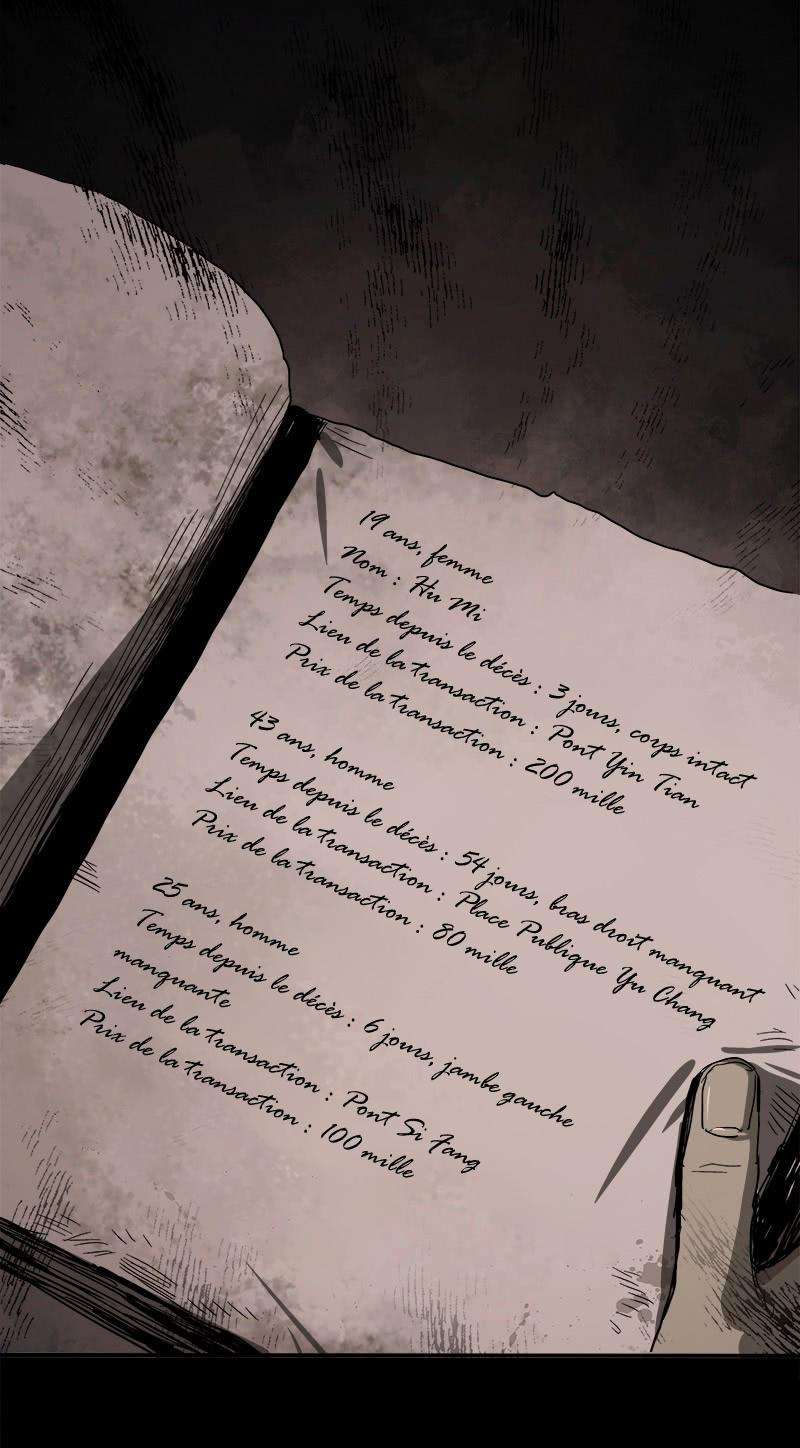 19 ans, femme
Nom : Hu Mi
Temps depuis le décès : 3 jours, corps intact
Lieu de la transaction : Pont Yin Tian
Prix de la transaction : 200 mille
43 ans, homme
Temps depuis le décès : 54 jours, bras droit manquant
Lieu de la transaction : Place Publique Yu Chang
Prix de la transaction : 80 mille
25 ans, homme
Temps depuis le décès : 6 jours, jambe gauche
manquante
Lieu de la transaction : Pont Si Fang
Prix de la transaction : 100 mille